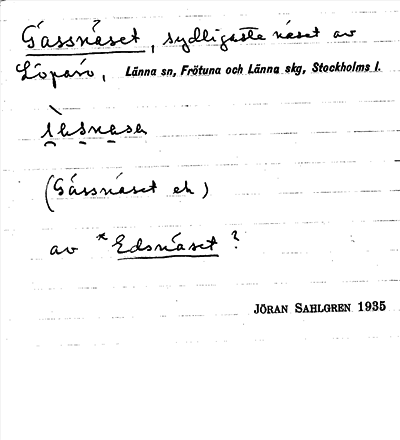 Gåssnäset, sydligaste näset av
Löparö, Länna sn, Frötuna och Länna skg, Stockholms l.
(Gåssnäset ek)
av *Edsnäset?
JÖRAN SAHLGREN 1935